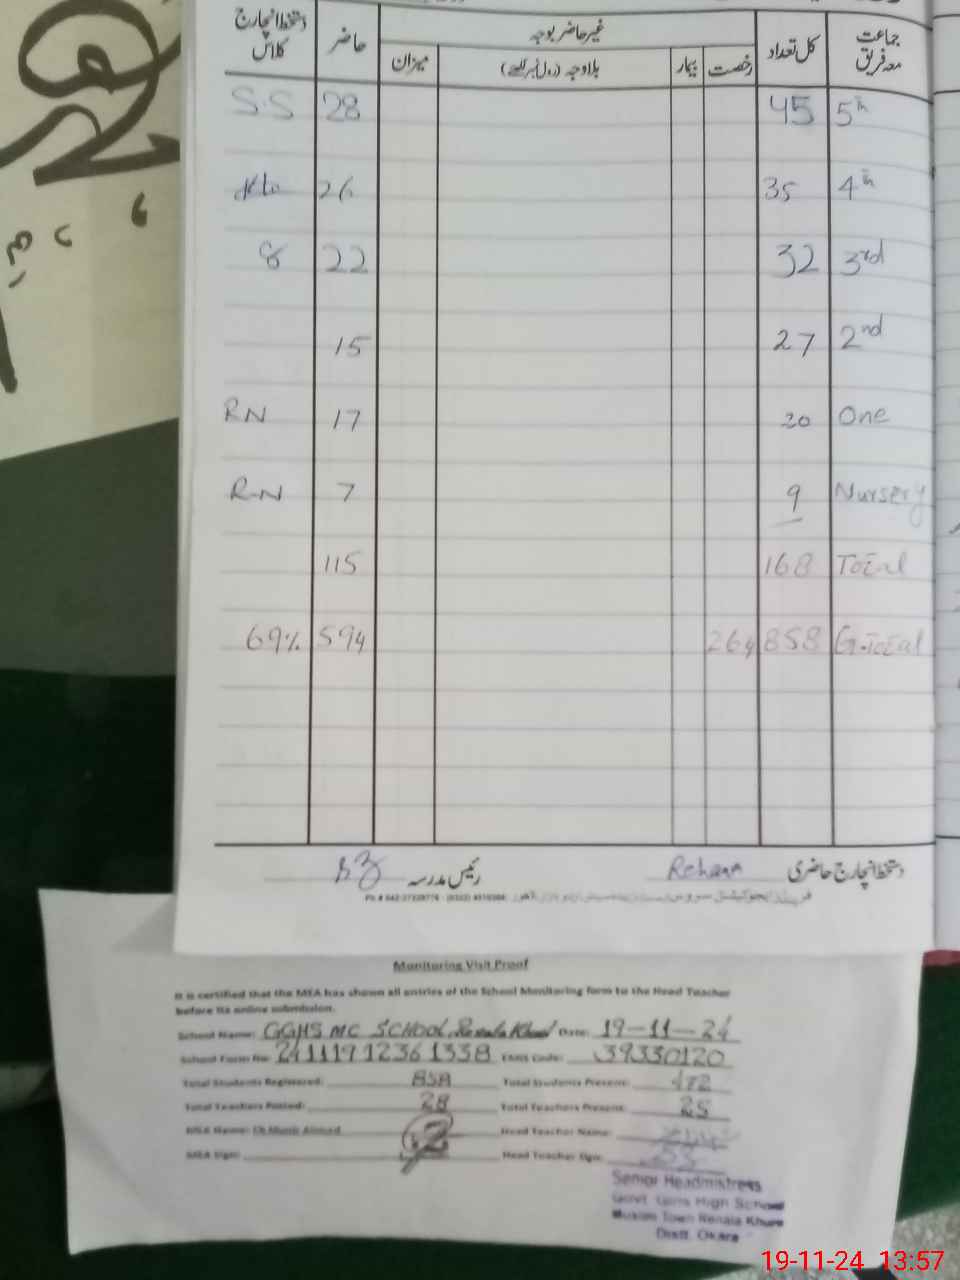 جماعت معہ فریق کل تعداد غیر حاضر بوجہ حاضر دستخط انچارج کلاس
رخصت بیمار بلاوجہ (رول نمبر لکھیے) میزان
5th 45 28 S.S
4th 35 26
3rd 32 22 8
2nd 27 15
One 20 17 RN
Nursery 9 7 R-N
Total 168 115
G.Total 858 264 594 69%
دستخط انچارج حاضری Rehana رئیس مدرسہ
Monitoring Visit Proof
It is certified that the MEA has shown all entries of the School Monitoring form to the Head Teacher
before its online submission.
School Name: GGHS MC SCHOOL Renala Khurd Date: 19-11-24
School Form No: 24111912361338 EMIS Code: 39330120
Total Students Registered: 858 Total Students Present:
Total Teachers Posted: 28 Total Teachers Present: 25
MEA Name: Ahmad Head Teacher Name:
MEA Sign: Head Teacher Sign:
Senior Headmistress
Govt. Girls High School
Town Renala Khurd
Distt. Okara
19-11-24 13:57